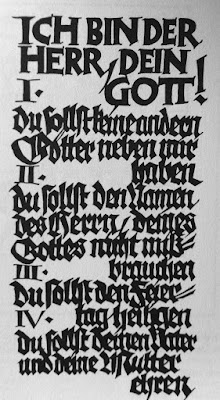 ICH BIN DER
HERR, DEIN
I· GOTT!
Du sollst keine andern
Götter neben mir
II· haben
Du sollst den Namen
des Herrn, deines
Gottes nicht miß-
III· brauchen
Du sollst den Feier-
IV· tag heiligen
Du sollst deinen Vater
und deine Mutter
ehren